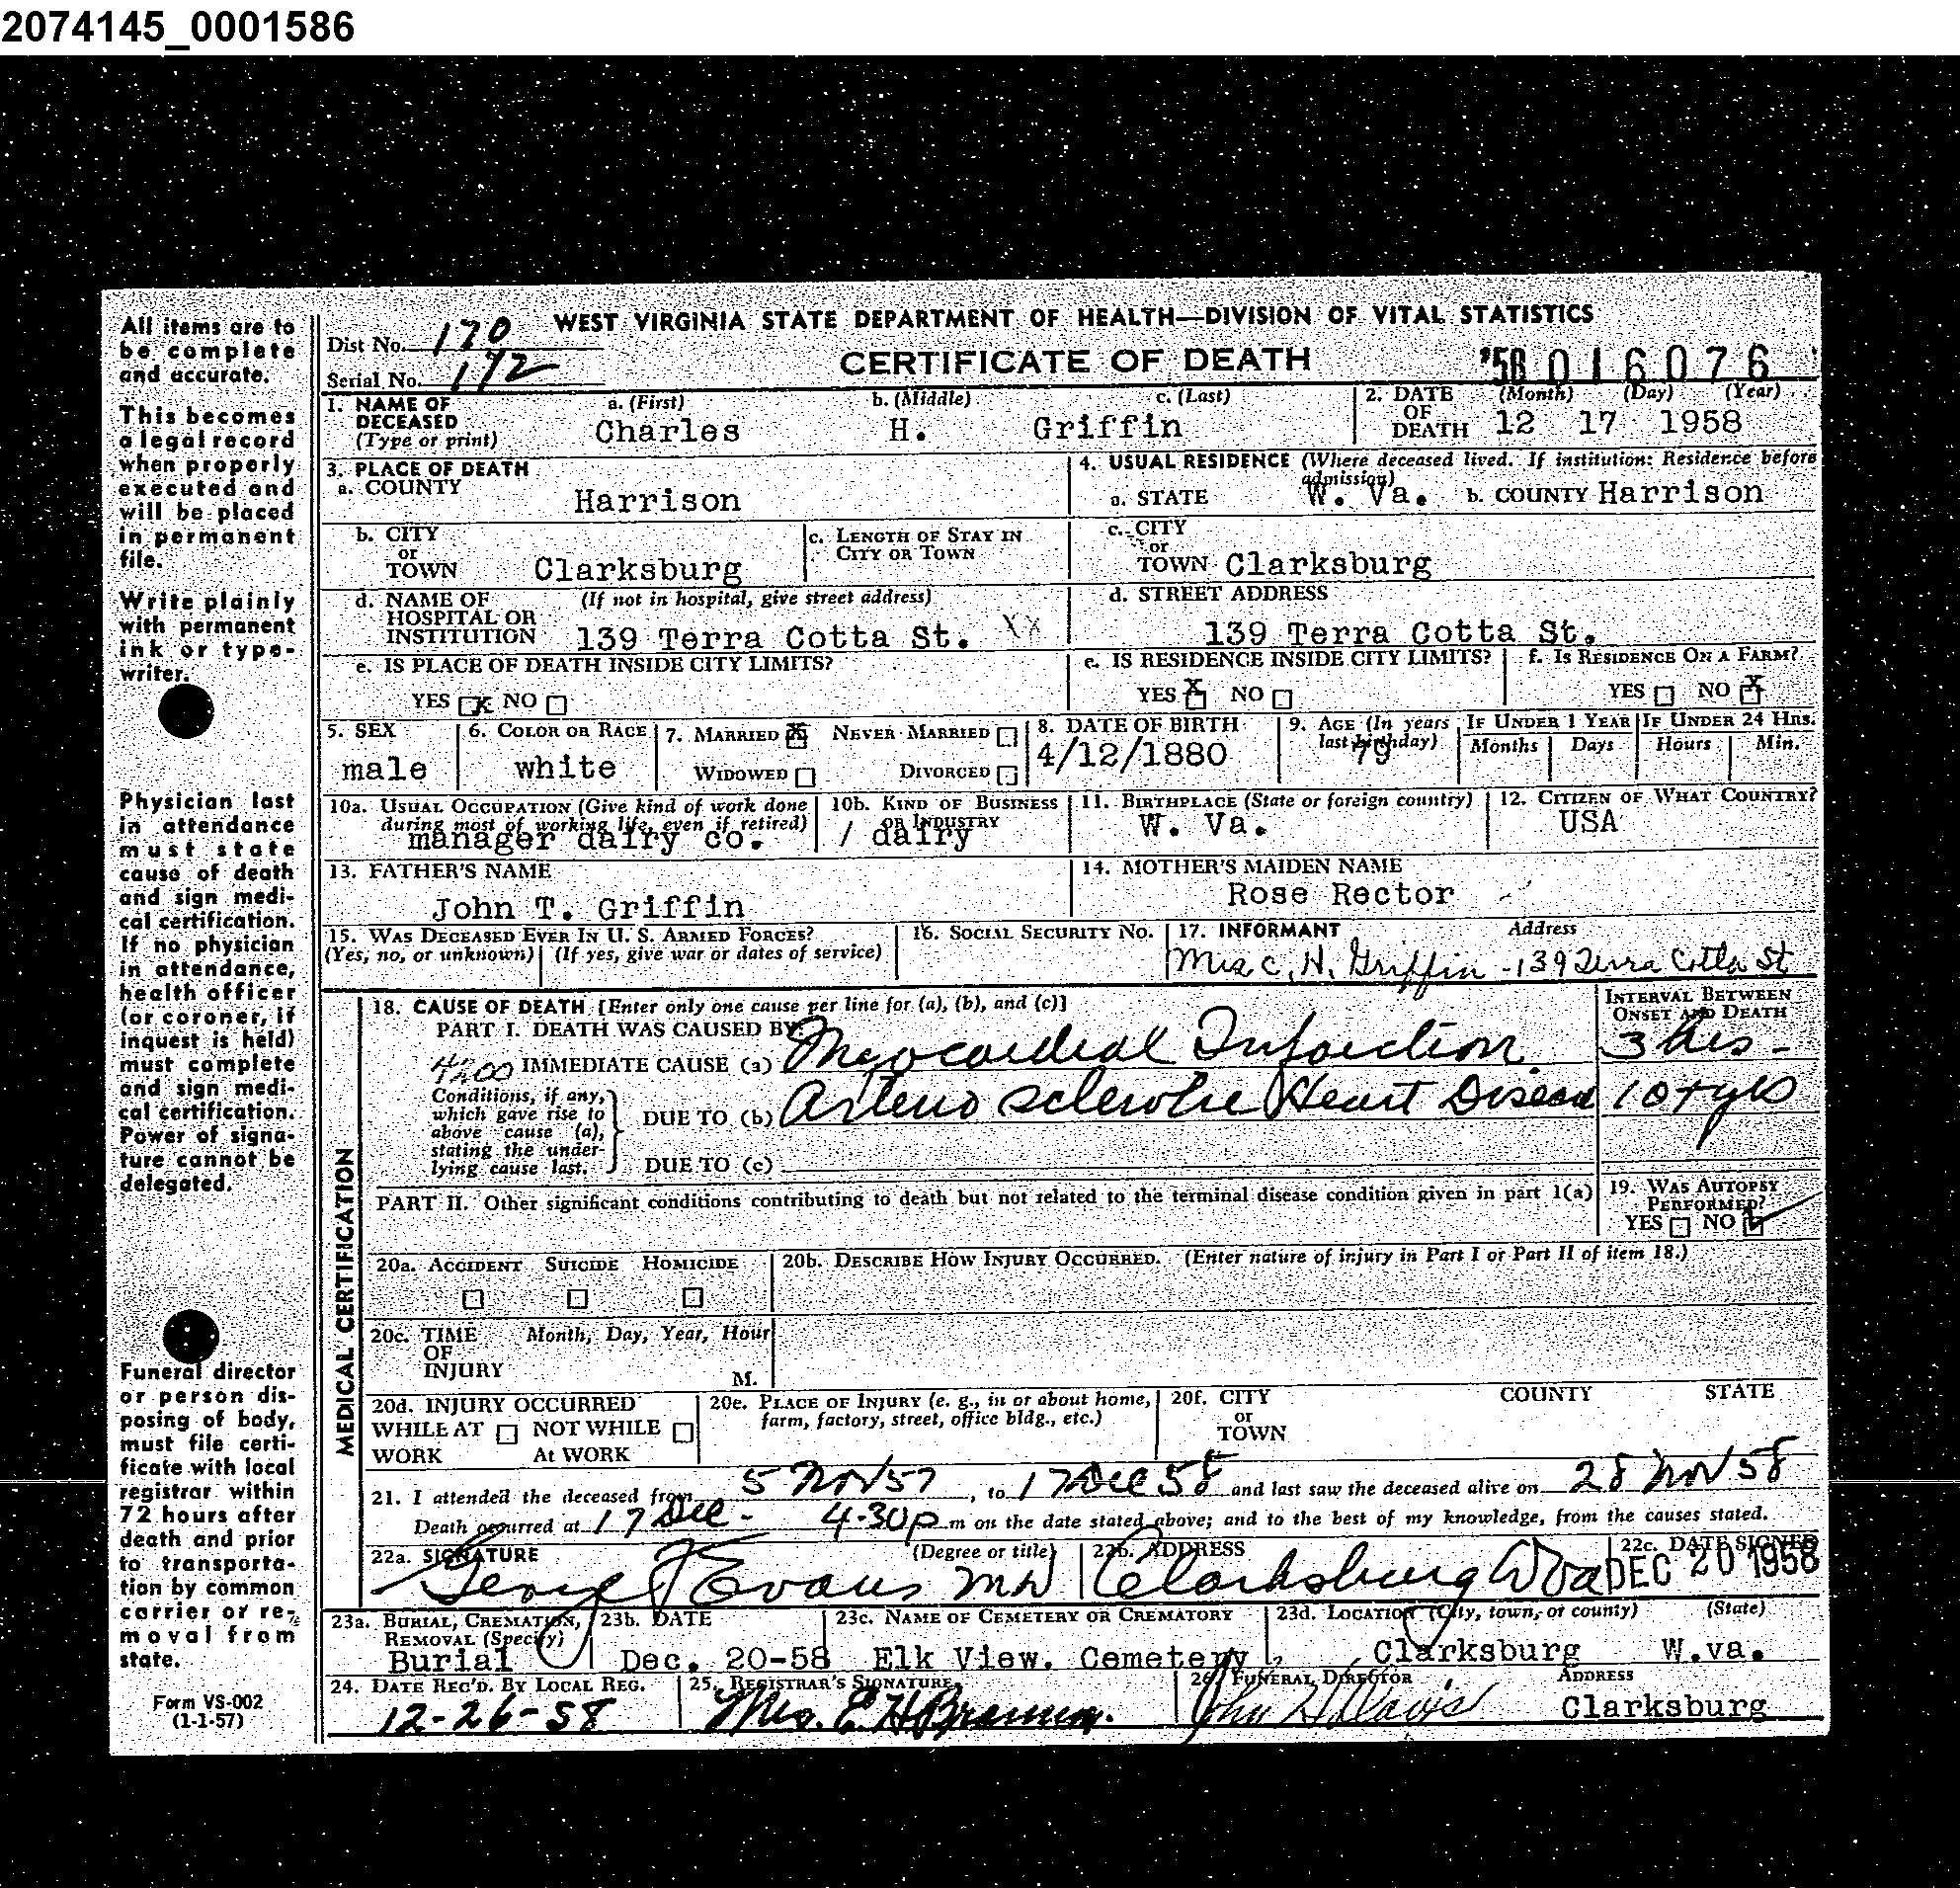 2074145_0001586
All items are to
be complete
and accurate.
This becomes
a legal record
when properly
executed and
will be placed
in permanent
file.
Write plainly
with permanent
ink or type-
writer.
Physician last
in attendance
must state
cause of death
and sign medi-
cal certification.
If no physician
in attendance,
health officer
(or coroner, if
inquest is held)
must complete
and sign medi-
cal certification.
Power of signa-
ture cannot be
delegated.
Funeral director
or person dis-
posing of body,
must file certi-
ficate with local
registrar within
72 hours after
death and prior
to transporta-
tion by common
carrier or re-
moval from
state.
Form VS-002
(1-1-57)
WEST VIRGINIA STATE DEPARTMENT OF HEALTH—DIVISION OF VITAL STATISTICS
Dist No. 170
CERTIFICATE OF DEATH
'58 016076
Serial No. 172
1. NAME OF DECEASED (Type or print) a. (First) b. (Middle) c. (Last)
Charles H. Griffin
2. DATE OF DEATH (Month) (Day) (Year)
12 17 1958
3. PLACE OF DEATH
a. COUNTY Harrison
4. USUAL RESIDENCE (Where deceased lived. If institution: Residence before admission)
a. STATE W. Va. b. COUNTY Harrison
b. CITY or TOWN Clarksburg
c. LENGTH OF STAY IN CITY OR TOWN
c. CITY or TOWN Clarksburg
d. NAME OF HOSPITAL OR INSTITUTION (If not in hospital, give street address)
139 Terra Cotta St. XX
d. STREET ADDRESS
139 Terra Cotta St.
e. IS PLACE OF DEATH INSIDE CITY LIMITS?
YES x NO
e. IS RESIDENCE INSIDE CITY LIMITS?
YES X NO
f. IS RESIDENCE ON A FARM?
YES NO X
5. SEX
male
6. COLOR OR RACE
white
7. MARRIED X NEVER MARRIED
WIDOWED DIVORCED
8. DATE OF BIRTH
4/12/1880
9. AGE (In years last birthday)
79
IF UNDER 1 YEAR
Months Days
IF UNDER 24 HRS.
Hours Min.
10a. USUAL OCCUPATION (Give kind of work done during most of working life, even if retired)
manager dairy co.
10b. KIND OF BUSINESS OR INDUSTRY
/ dairy
11. BIRTHPLACE (State or foreign country)
W. Va.
12. CITIZEN OF WHAT COUNTRY?
USA
13. FATHER'S NAME
John T. Griffin
14. MOTHER'S MAIDEN NAME
Rose Rector
15. WAS DECEASED EVER IN U. S. ARMED FORCES?
(Yes, no, or unknown) (If yes, give war or dates of service)
16. SOCIAL SECURITY NO.
17. INFORMANT Address
Mrs. C. H. Griffin - 139 Terra Cotta St
MEDICAL CERTIFICATION
18. CAUSE OF DEATH [Enter only one cause per line for (a), (b), and (c)]
INTERVAL BETWEEN ONSET AND DEATH
PART I. DEATH WAS CAUSED BY:
4200 IMMEDIATE CAUSE (a) Myocardial Infarction 3 hrs -
Conditions, if any, which gave rise to above cause (a), stating the under- lying cause last.
DUE TO (b) Arterio sclerotic Heart Disease 10+yrs
DUE TO (c)
PART II. Other significant conditions contributing to death but not related to the terminal disease condition given in part 1(a)
19. WAS AUTOPSY PERFORMED?
YES NO
20a. ACCIDENT SUICIDE HOMICIDE
20b. DESCRIBE HOW INJURY OCCURRED. (Enter nature of injury in Part I or Part II of item 18.)
20c. TIME OF INJURY Month, Day, Year, Hour
M.
20d. INJURY OCCURRED
WHILE AT WORK NOT WHILE At WORK
20e. PLACE OF INJURY (e. g., in or about home, farm, factory, street, office bldg., etc.)
20f. CITY or TOWN COUNTY STATE
21. I attended the deceased from 5 Nov 57, to 17 Dec 58 and last saw the deceased alive on 28 Nov 58
Death occurred at 17 Dec - 4:30 p m on the date stated above; and to the best of my knowledge, from the causes stated.
22a. SIGNATURE (Degree or title)
George F Evans MD
22b. ADDRESS
Clarksburg W Va
22c. DATE SIGNED
DEC 20 1958
23a. BURIAL, CREMATION, REMOVAL (Specify)
Burial
23b. DATE
Dec. 20-58
23c. NAME OF CEMETERY OR CREMATORY
Elk View. Cemetery
23d. LOCATION (City, town, or county) (State)
Clarksburg W.va.
24. DATE REC'D. BY LOCAL REG.
12-26-58
25. REGISTRAR'S SIGNATURE
Mrs. E. H.
26. FUNERAL DIRECTOR ADDRESS
John H Davis Clarksburg